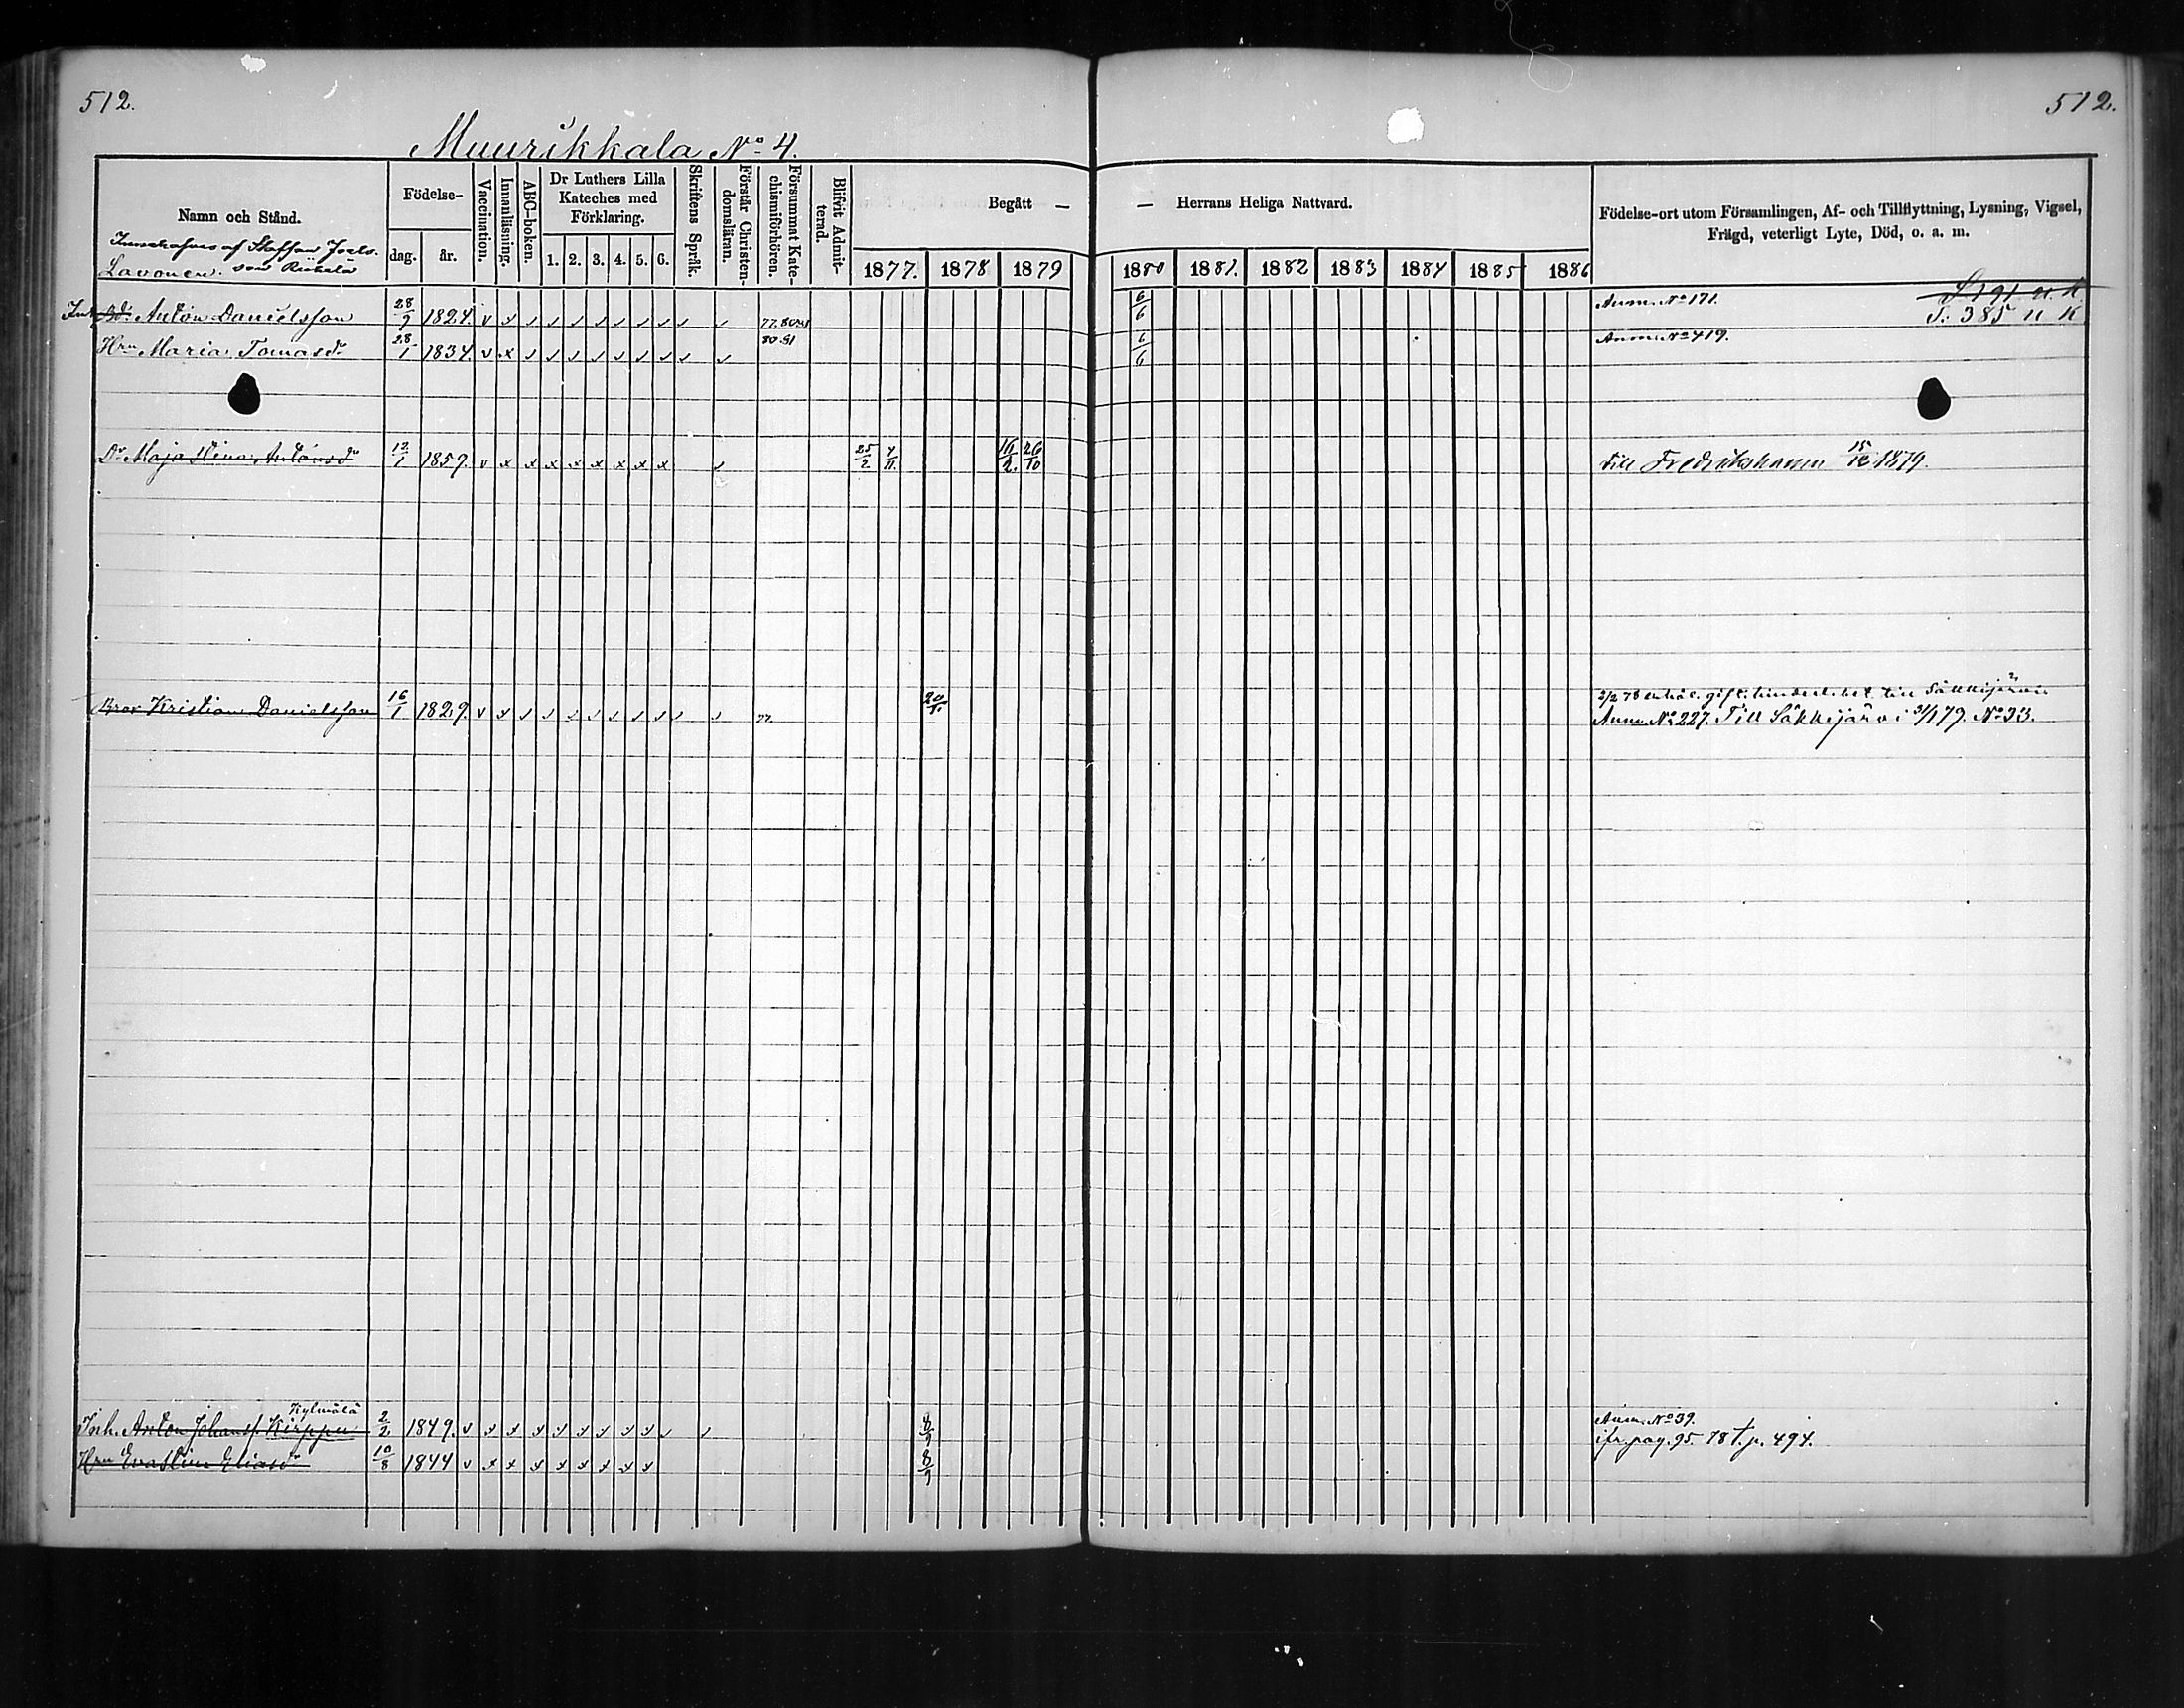 512.
512.
Muurikkala No 4.
Namn och Stånd.
Födelse-
dag.
år.
Vaccination.
Innanläsning.
ABC-boken.
Dr Luthers Lilla
Kateches med
Förklaring.
1. 2. 3. 4. 5. 6.
Skriftens Språk.
Förstår Christen-
domsläran.
Försummat Kate-
chismiförhören.
Blifvit Admit-
terad.
Begått —
— Herrans Heliga Nattvard.
1877. 1878 1879
1880 1881. 1882 1883 1884 1885 1886
Födelse-ort utom Församlingen, Af- och Tillflyttning, Lysning, Vigsel,
Frägd, veterligt Lyte, Död, o. a. m.
af Staffan Joels.
Lavonen.
Anton Danielsson 28/9 1824. v x 6/6 Anm. No 171.
S. 385 n K
Hru Maria Tomasdr 28/1 1834. v x 80 81 6/6 Anm. No 419.
Dr Maja Stina Antonsdr 12/1 1857. v x x x x x x x x 25/2 4/11. 16/2. 26/10 till Fredrikshamn 15/12 1879.
Bror Kristian Danielsson 16/1 1829. v x 77. 20/1.
Anm. No 227. Till Säkkijärvi 31/1 79. No 33.
Kylmälä
Inh. Anton Johanss. Kirppu 2/2 1849. v x x x x x x x x 8/9 Anm. No 39.
jfr. pag. 95. 78 t. p. 494.
Hru Eva Stina Eliasdr 10/8 1844 v x x x x x x x x 8/9